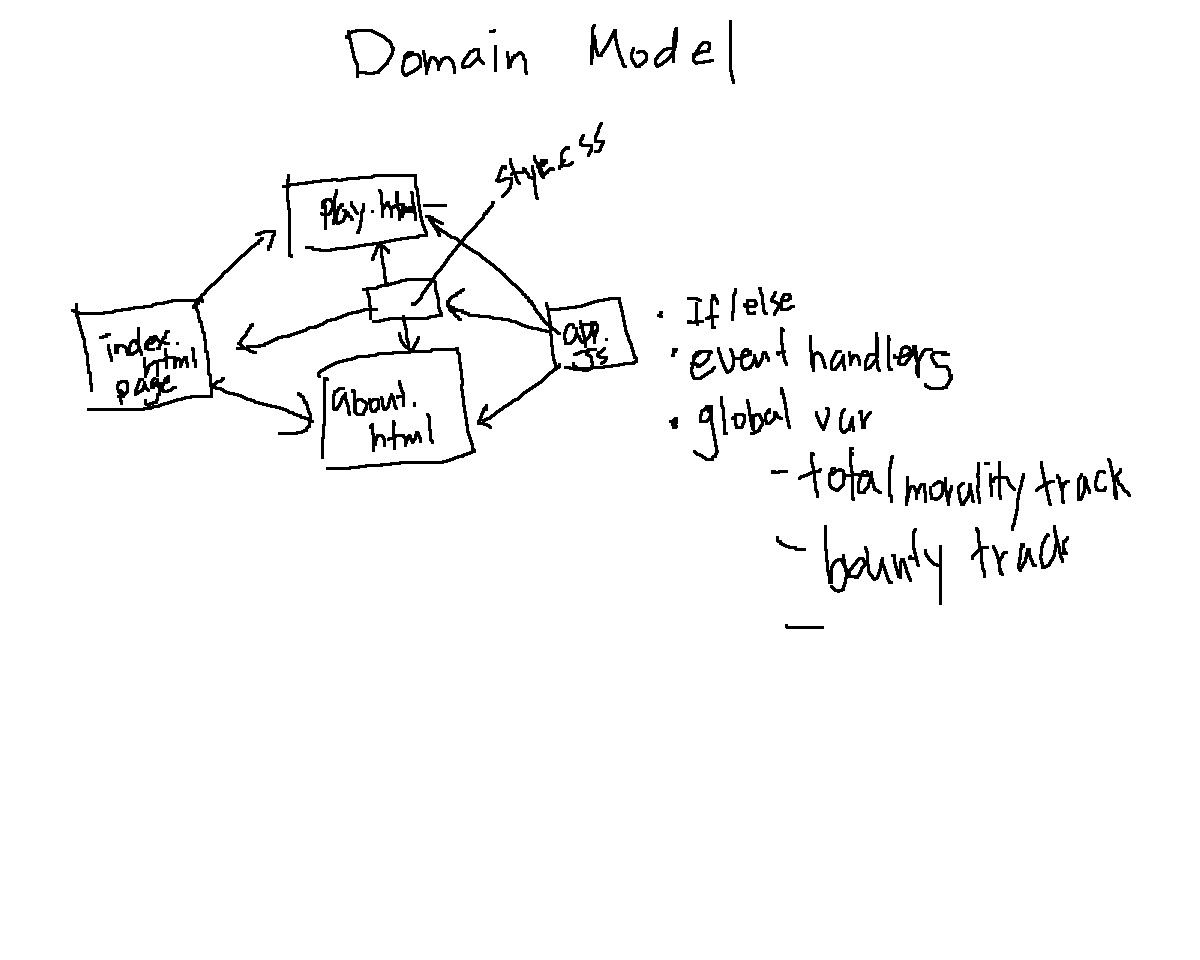 Domain Model
style.css
play.html
index.
html
page
about.
html
app.
Js
• If/else
• event handlers
• global var
- total morality track
- bounty track
-